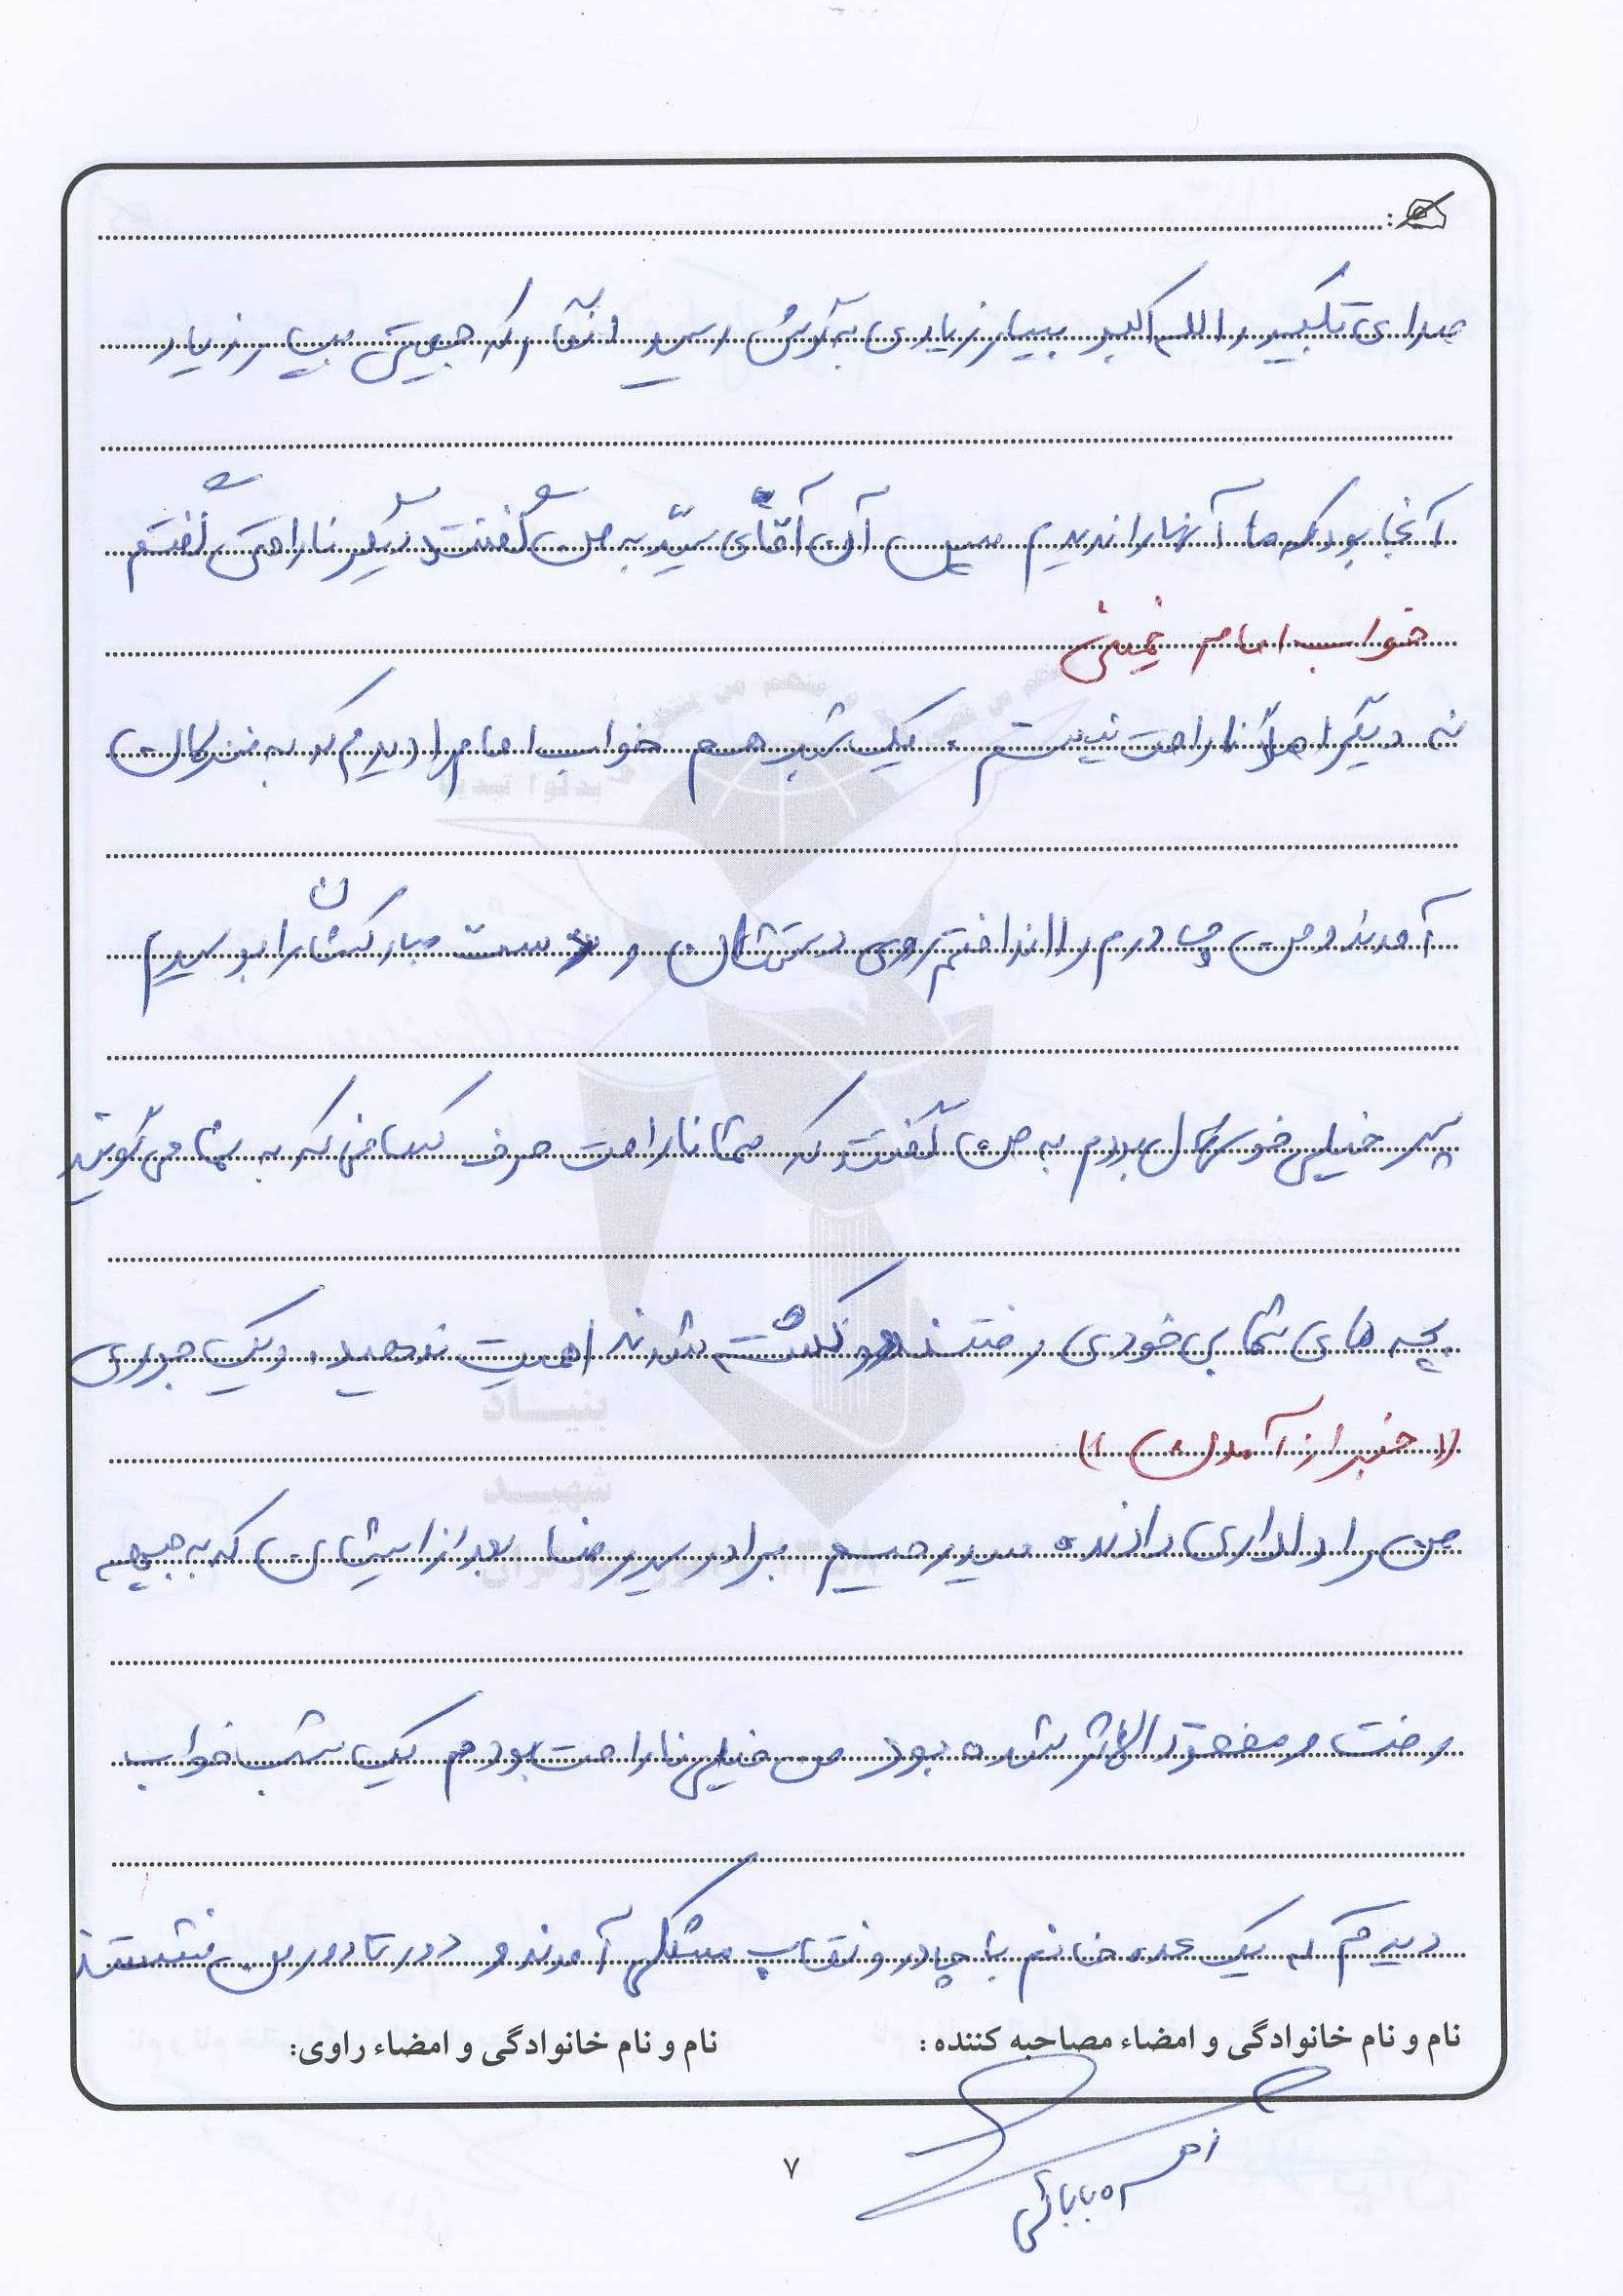 صدای تکبیر و الله اکبر بسیار زیادی به گوش رسید انگار که جمعیتی بسیار زیاد
آنجا بود که ما آنها را ندیدیم سپس آن آقای سید به من گفتند دیگر ناراحتی گفتم
خواب امام خمینی
نه دیگر اصلاً ناراحت نیستم. یک شب هم خواب امام را دیدم که به منزلمان
آمدند و من چادرم را انداختم روی دستشان و دست مبارکشان را بوسیدم
خیلی خوشحال بودم به من گفتند که شما ناراحت حرف کسانی که به شما می گویند
بچه های شما بی خودی رفتند و کشته شدند اهمیت ندهید. و یک جوری
(( خبر از آمدن ))
من را دلداری دادند. سید رحیم برادر سید رضا بعد از ایشان که به جبهه
رفت و مفقود الاثر شده بود من خیلی ناراحت بودم یک شب خواب
دیدم که یک عده خانم با چادر و نقاب مشکی آمدند و دور تا دور من نشستند
نام و نام خانوادگی و امضاء مصاحبه کننده :
نام و نام خانوادگی و امضاء راوی:
زهره بابائی
۷